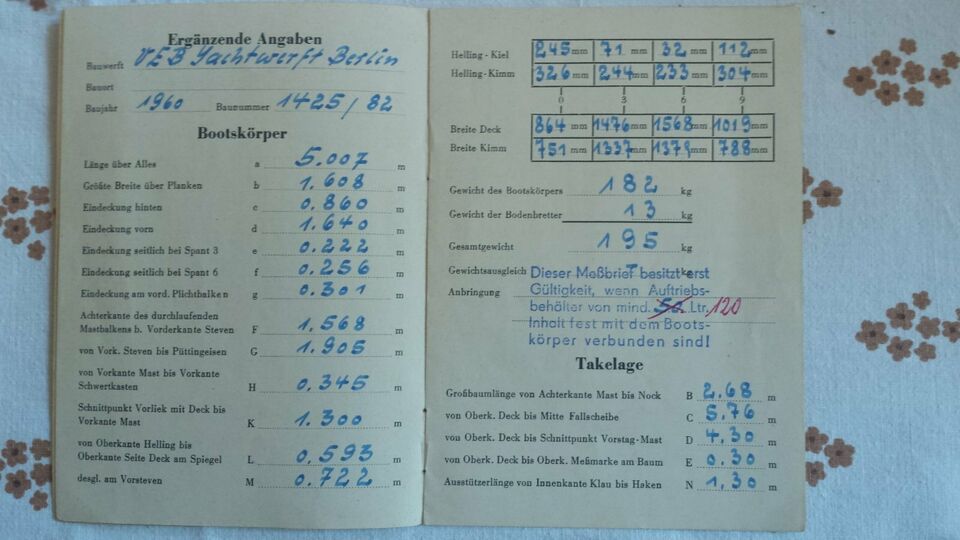 Ergänzende Angaben
Bauwerft VEB Yachtwerft Berlin
Bauort
Baujahr 1960 Baunummer 1425/82
Bootskörper
Länge über Alles a 5.007 m
Größte Breite über Planken b 1.608 m
Eindeckung hinten c 0.860 m
Eindeckung vorn d 1.640 m
Eindeckung seitlich bei Spant 3 e 0.222 m
Eindeckung seitlich bei Spant 6 f 0.256 m
Eindeckung am vord. Plichtbalken g 0.301 m
Achterkante des durchlaufenden
Mastbalkens b. Vorderkante Steven F 1.568 m
von Vork. Steven bis Püttingeisen G 1.905 m
von Vorkante Mast bis Vorkante
Schwertkasten H 0.345 m
Schnittpunkt Vorliek mit Deck bis
Vorkante Mast K 1.300 m
von Oberkante Helling bis
Oberkante Seite Deck am Spiegel L 0.593 m
desgl. am Vorsteven M 0.722 m
Helling-Kiel 245 mm 71 mm 32 mm 112 mm
Helling-Kimm 326 mm 244 mm 233 mm 304 mm
0 3 6 9
Breite Deck 864 mm 1476 mm 1568 mm 1019 mm
Breite Kimm 751 mm 1337 mm 1379 mm 788 mm
Gewicht des Bootskörpers 182 kg
Gewicht der Bodenbretter 13 kg
Gesamtgewicht 195 kg
Gewichtsausgleich kg
Anbringung
Dieser Meßbrief besitzt erst
Gültigkeit, wenn Auftriebs-
behälter von mind. 50 Ltr. 120
Inhalt fest mit dem Boots-
körper verbunden sind!
Takelage
Großbaumlänge von Achterkante Mast bis Nock B 2.68 m
von Oberk. Deck bis Mitte Fallscheibe C 5.76 m
von Oberk. Deck bis Schnittpunkt Vorstag-Mast D 4.30 m
von Oberk. Deck bis Oberk. Meßmarke am Baum E 0.30 m
Ausstützerlänge von Innenkante Klau bis Haken N 1.30 m